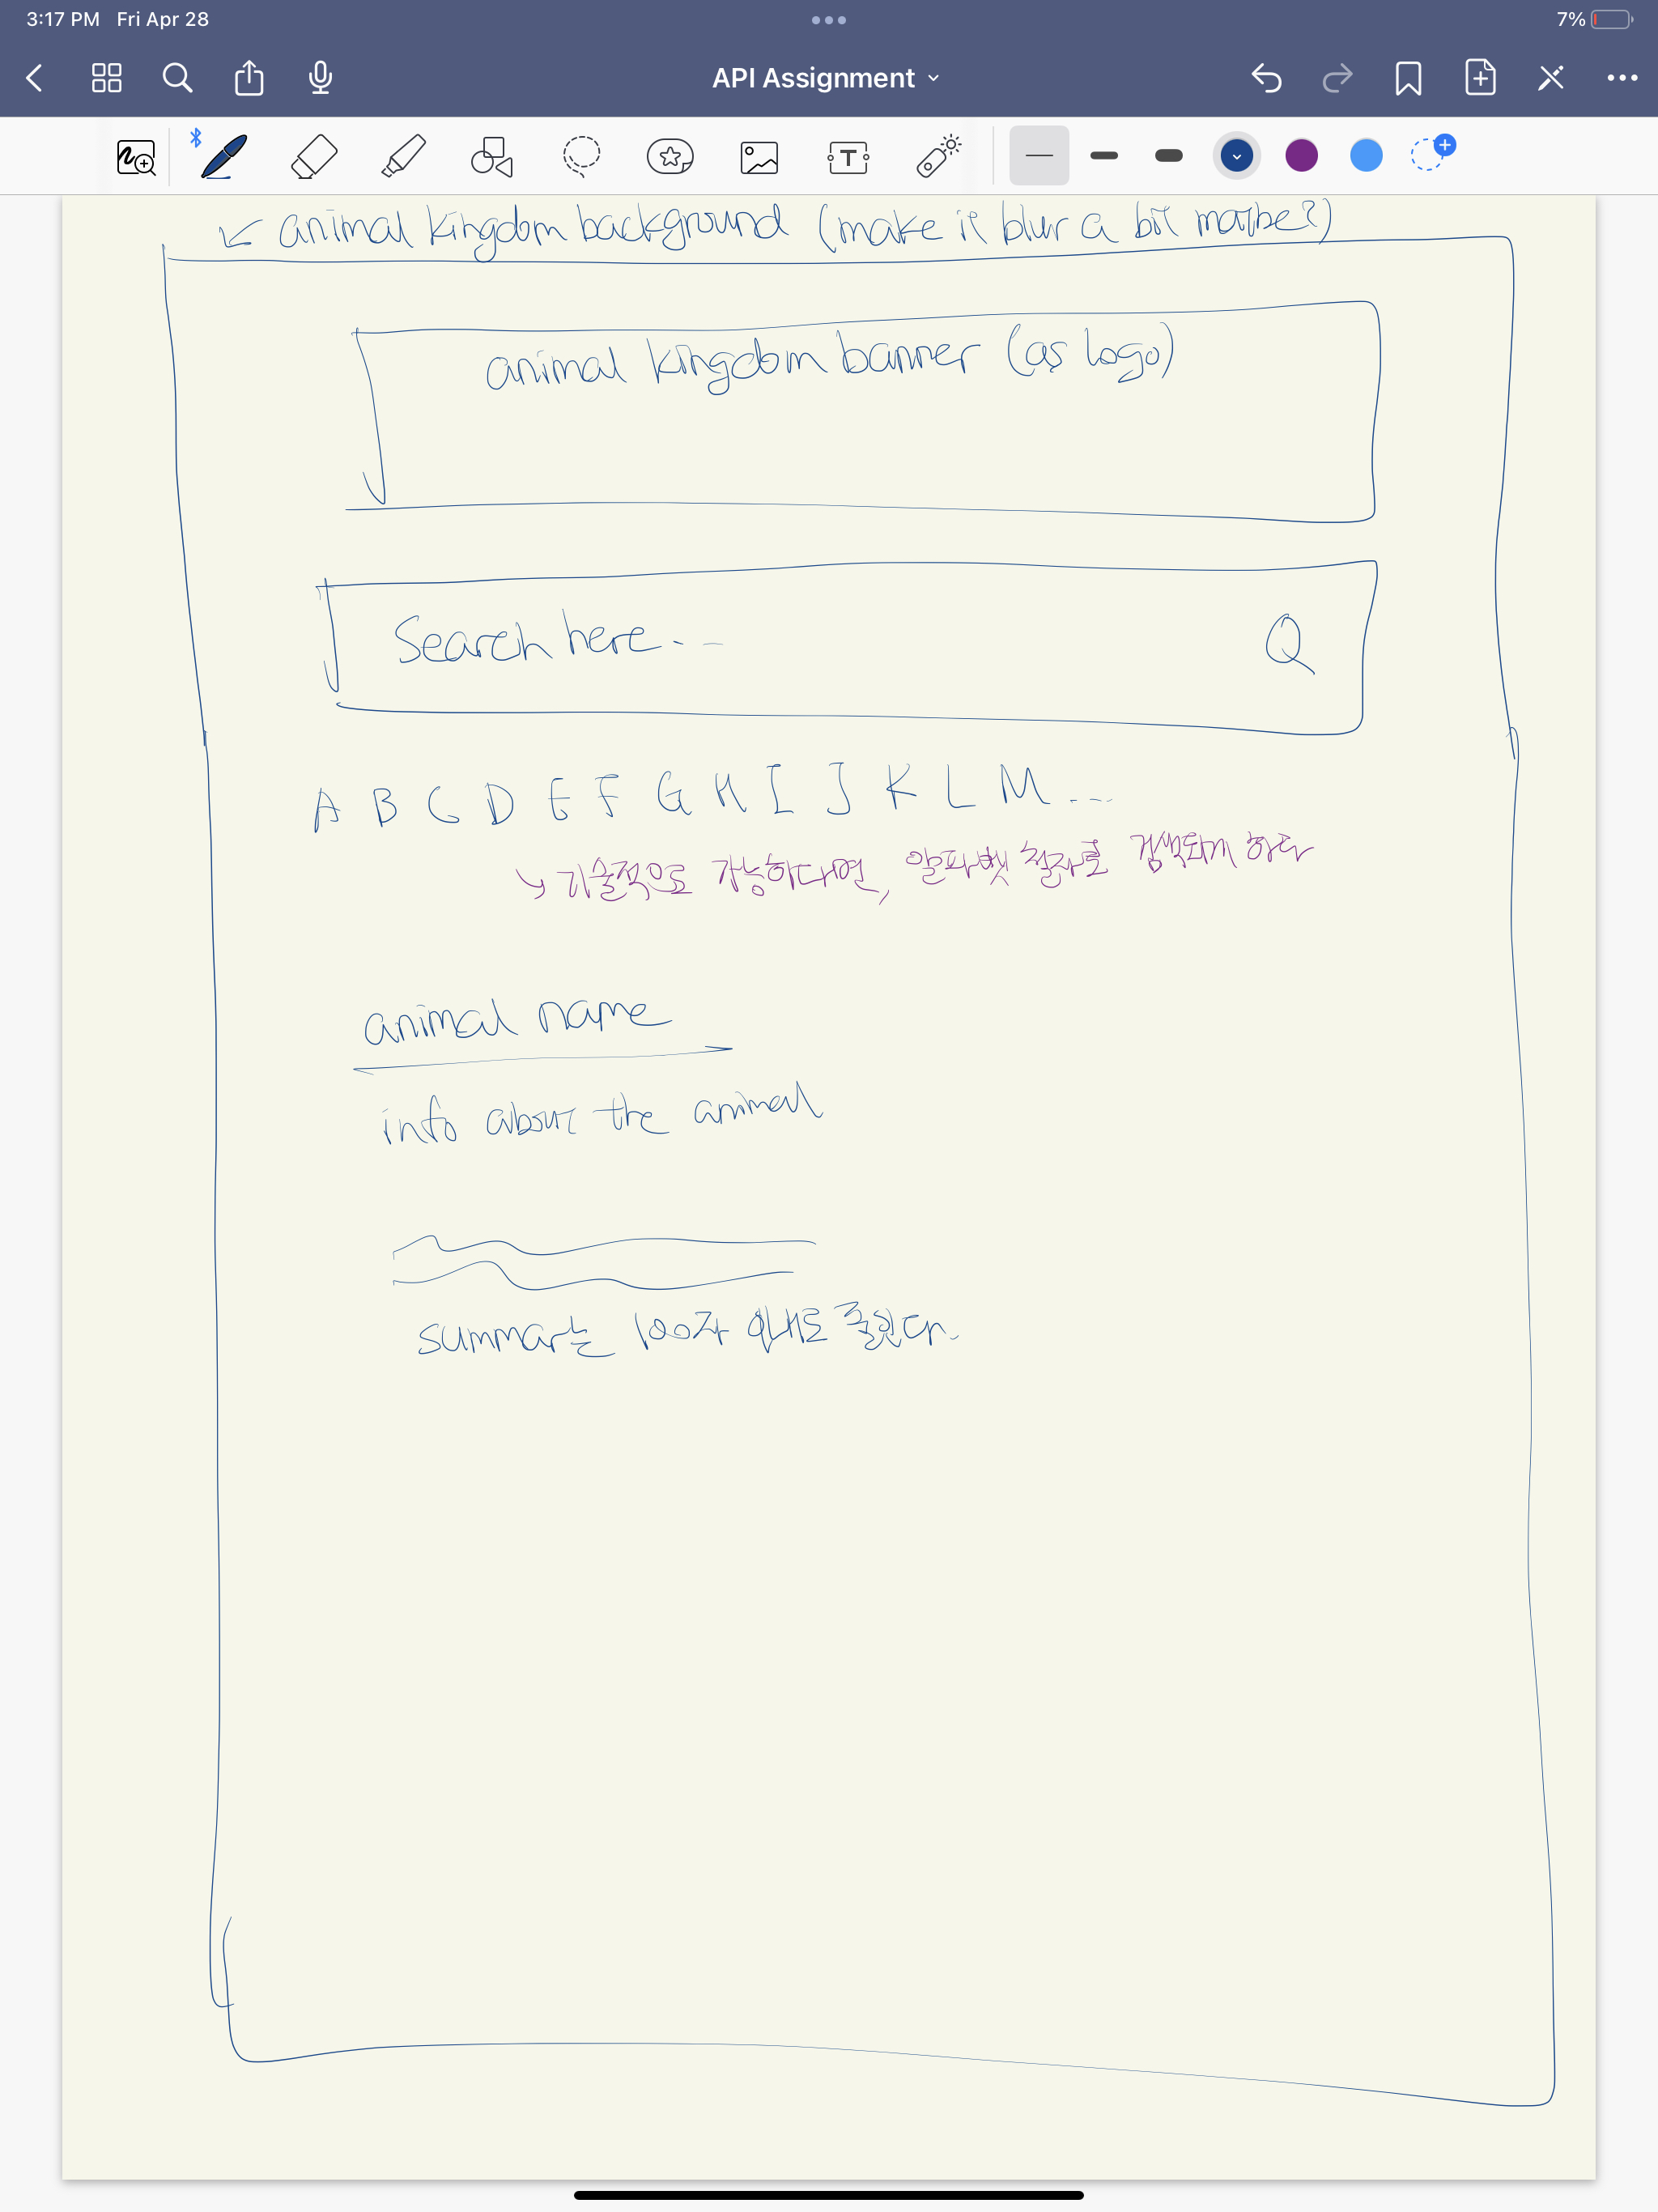 3:17 PM Fri Apr 28
7%
API Assignment
animal kingdom background (make it blur a bit maybe?)
animal kingdom banner (as logo)
Search here...
A B C D E F G H I J K L M ...
기술적으로 가능하다면, 알파벳 철자로 검색되게 하다
animal name
info about the animal
summar는 100자 이내로